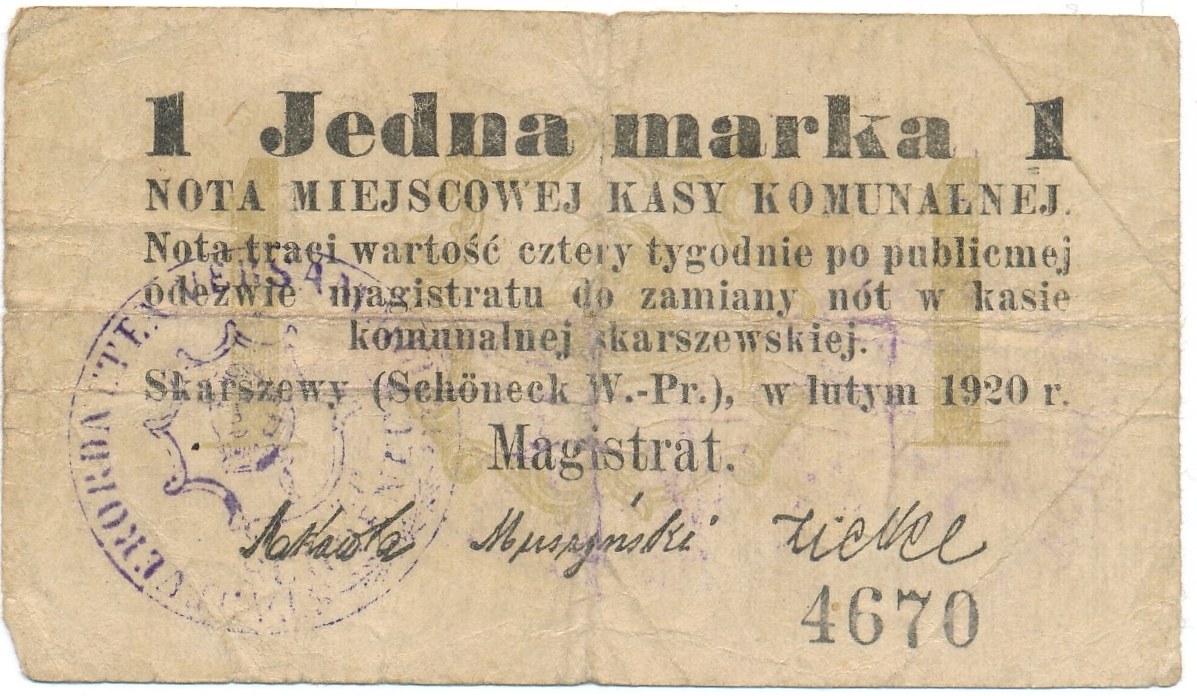 1 Jedna marka 1
NOTA MIEJSCOWEJ KASY KOMUNALNEJ.
Nota traci wartość cztery tygodnie po publicznej
odezwie magistratu do zamiany nót w kasie
komunalnej skarszewskiej.
Skarszewy (Schöneck W.-Pr.), w lutym 1920 r.
Magistrat.
Muszyński
4670